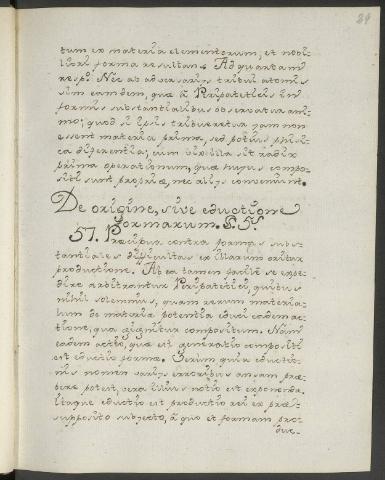 84
tum ex materia elementorum, et nobi-
liori forma resultans. Ad quartam
resp. Nec ab adversarijs tribui atomis
vim eamdem, quæ à Peripateticis in
formis substantialibus observatur ani-
mo; quod si ipsis tribueretur jam non
essent materia prima, sed potius physi-
ca differentia; cum illa sit radix
prima operationum, quæ hujus compo-
siti sunt propriæ, nec alijs conveniunt.
De origine, sive eductione
formarum. §. 5.
57. Præcipua contra formas subs-
tantiales difficultas ex illarum oritur
productione. Ab ea tamen facile se expe-
dire arbitrantur Peripatetici, quibus
nihil solemnius, quam rerum materia-
lium de materiæ potentia educi eadem ac-
tione, qua gignitur compositum. Nam
eadem actio, quæ est generatio compositi
est eductio formæ. Verum quia eductio-
nis nomen varijs erroribus ansam præ-
bere potest, vera illius notio est exponenda.
Itaque eductio est productio rei ex præ-
supposito subjecto, à quo et formam pro-
duc-